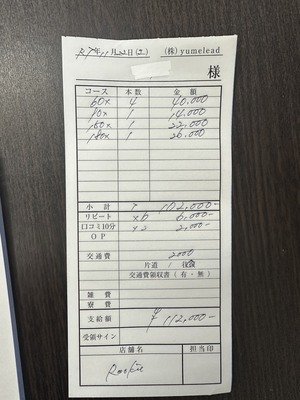 R7年11月22日(土) (株) yumelead
様
コース 本数 金額
60× 4 40,000
90× 1 14,000
1 22,000
180× 1 26,000
小計 7 102,000-
リピート ×6 6,000-
口コミ10分 ×2 2,000-
OP
交通費 2000
片道 / 夜会
交通費領収書 (有・無)
雑費
寮費
支給額 ¥112,000-
受領サイン
店舗名 担当印